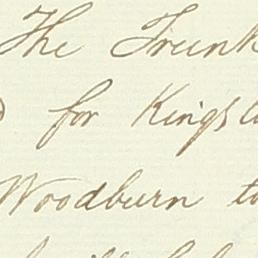 The Trunk
for Kings
Woodburn to